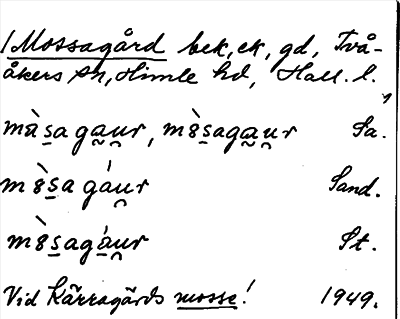 /Mossagård bek, ek, gd, Två-
åkers sn, Himle hd, Hall. l.
mɑ̀s̠agau̯r, mɞ̀s̠agau̯r Sa.
mɞ̀s̠agáu̯r Sand.
mɞ̀s̠agáu̯r St.
Vid Kärragårds mosse! 1949.